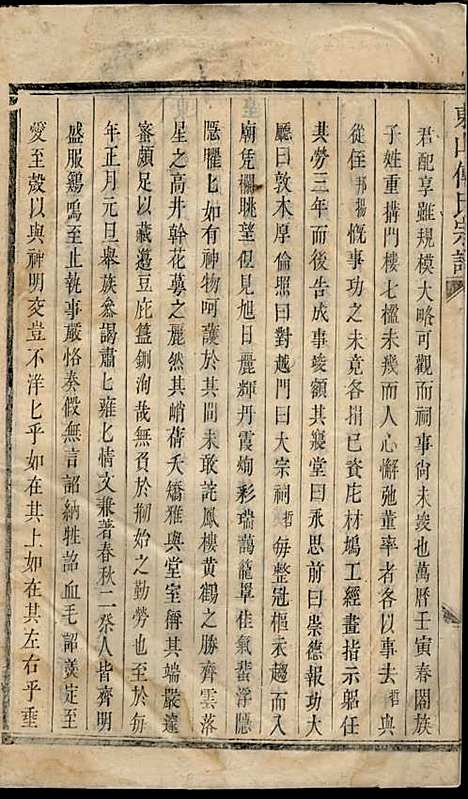 東山傅氏宗譜
君配享雖規模大略可觀而祠事尚未竣也萬曆壬寅春闔族
子姓重搆門樓七楹未幾而人心懈弛董率者各以事去哲與
從侄邦楊恱事功之未竟各捐己資庀材鳩工經畫指示躬任
其勞三年而後告成事竣額其寢堂曰永思前曰崇德報功大
廳曰敦本厚倫照曰對越門曰大宗祠哲每整冠樞衣趨而入
廟凭欄眺望但見旭日麗輝丹霞絢彩瑞藹籠罩佳氣蜚浮隱
隱躍匕如有神物呵護於其間未敢詫鳳樓黄鶴之勝齊雲落
星之高井幹花萼之麗然其峭蒨夭矯雅與堂室觧其端嚴邃
窨頗足以藏籩豆庇簠鉶洵哉無負於剏始之勤勞也至於每
年正月元旦舉族叅謁肅匕雍匕情文兼著春秋二祭人皆齊明
盛服鷄鳴至止執事嚴恪奏假無言詔納牲詔血毛詔羮定至
愛至慤以與神明交豈不洋匕乎如在其上如在其左右乎垂